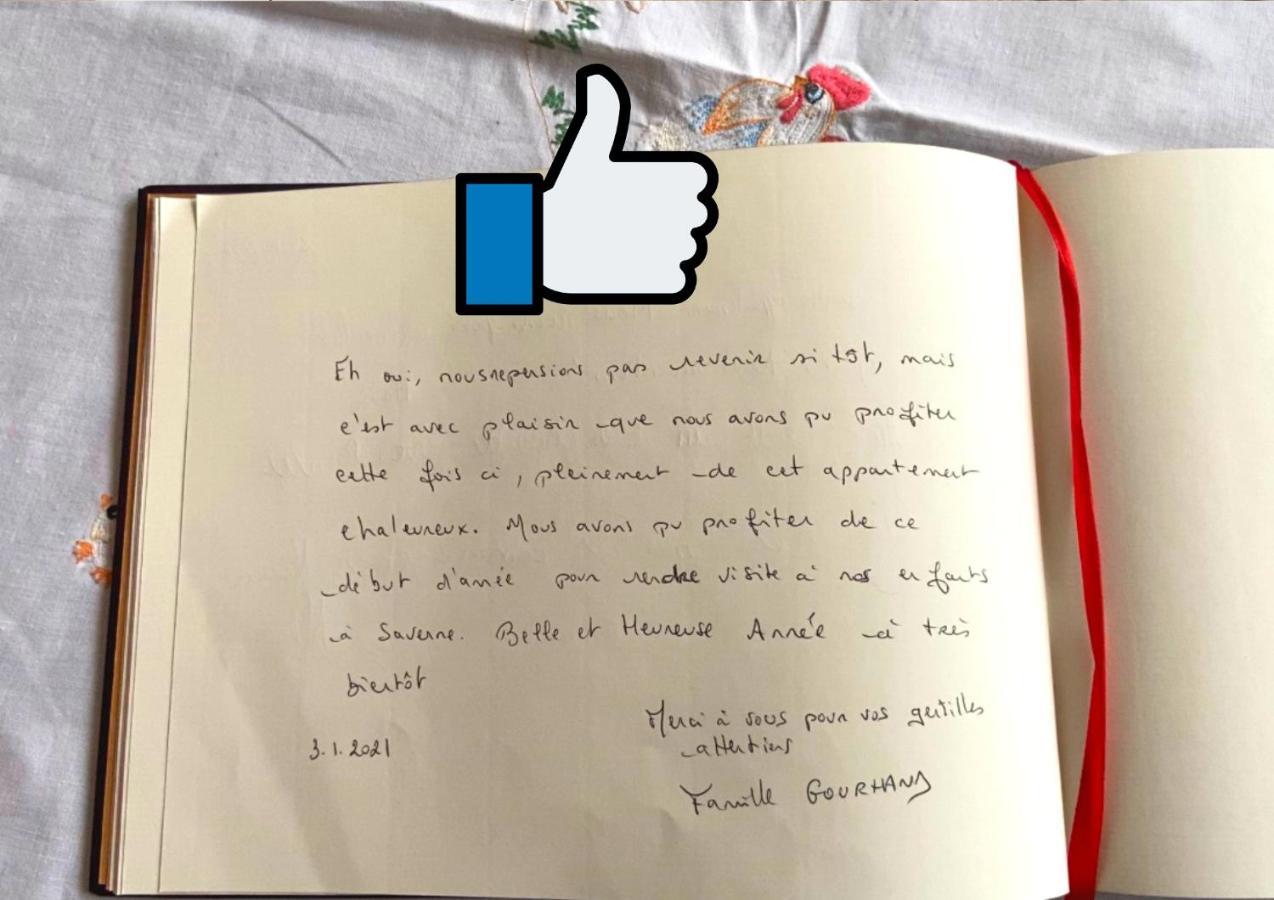 Eh oui, nous nepensions pas revenir si tôt, mais
c'est avec plaisir que nous avons pu profiter
cette fois ci, pleinement de cet appartement
chaleureux. Nous avons pu profiter de ce
début d'année pour rendre visite à nos enfants
à Saverne. Belle et Heureuse Année à très
bientôt
Merci à vous pour vos gentilles
attentions
3.1.2021
Famille GOURHAND